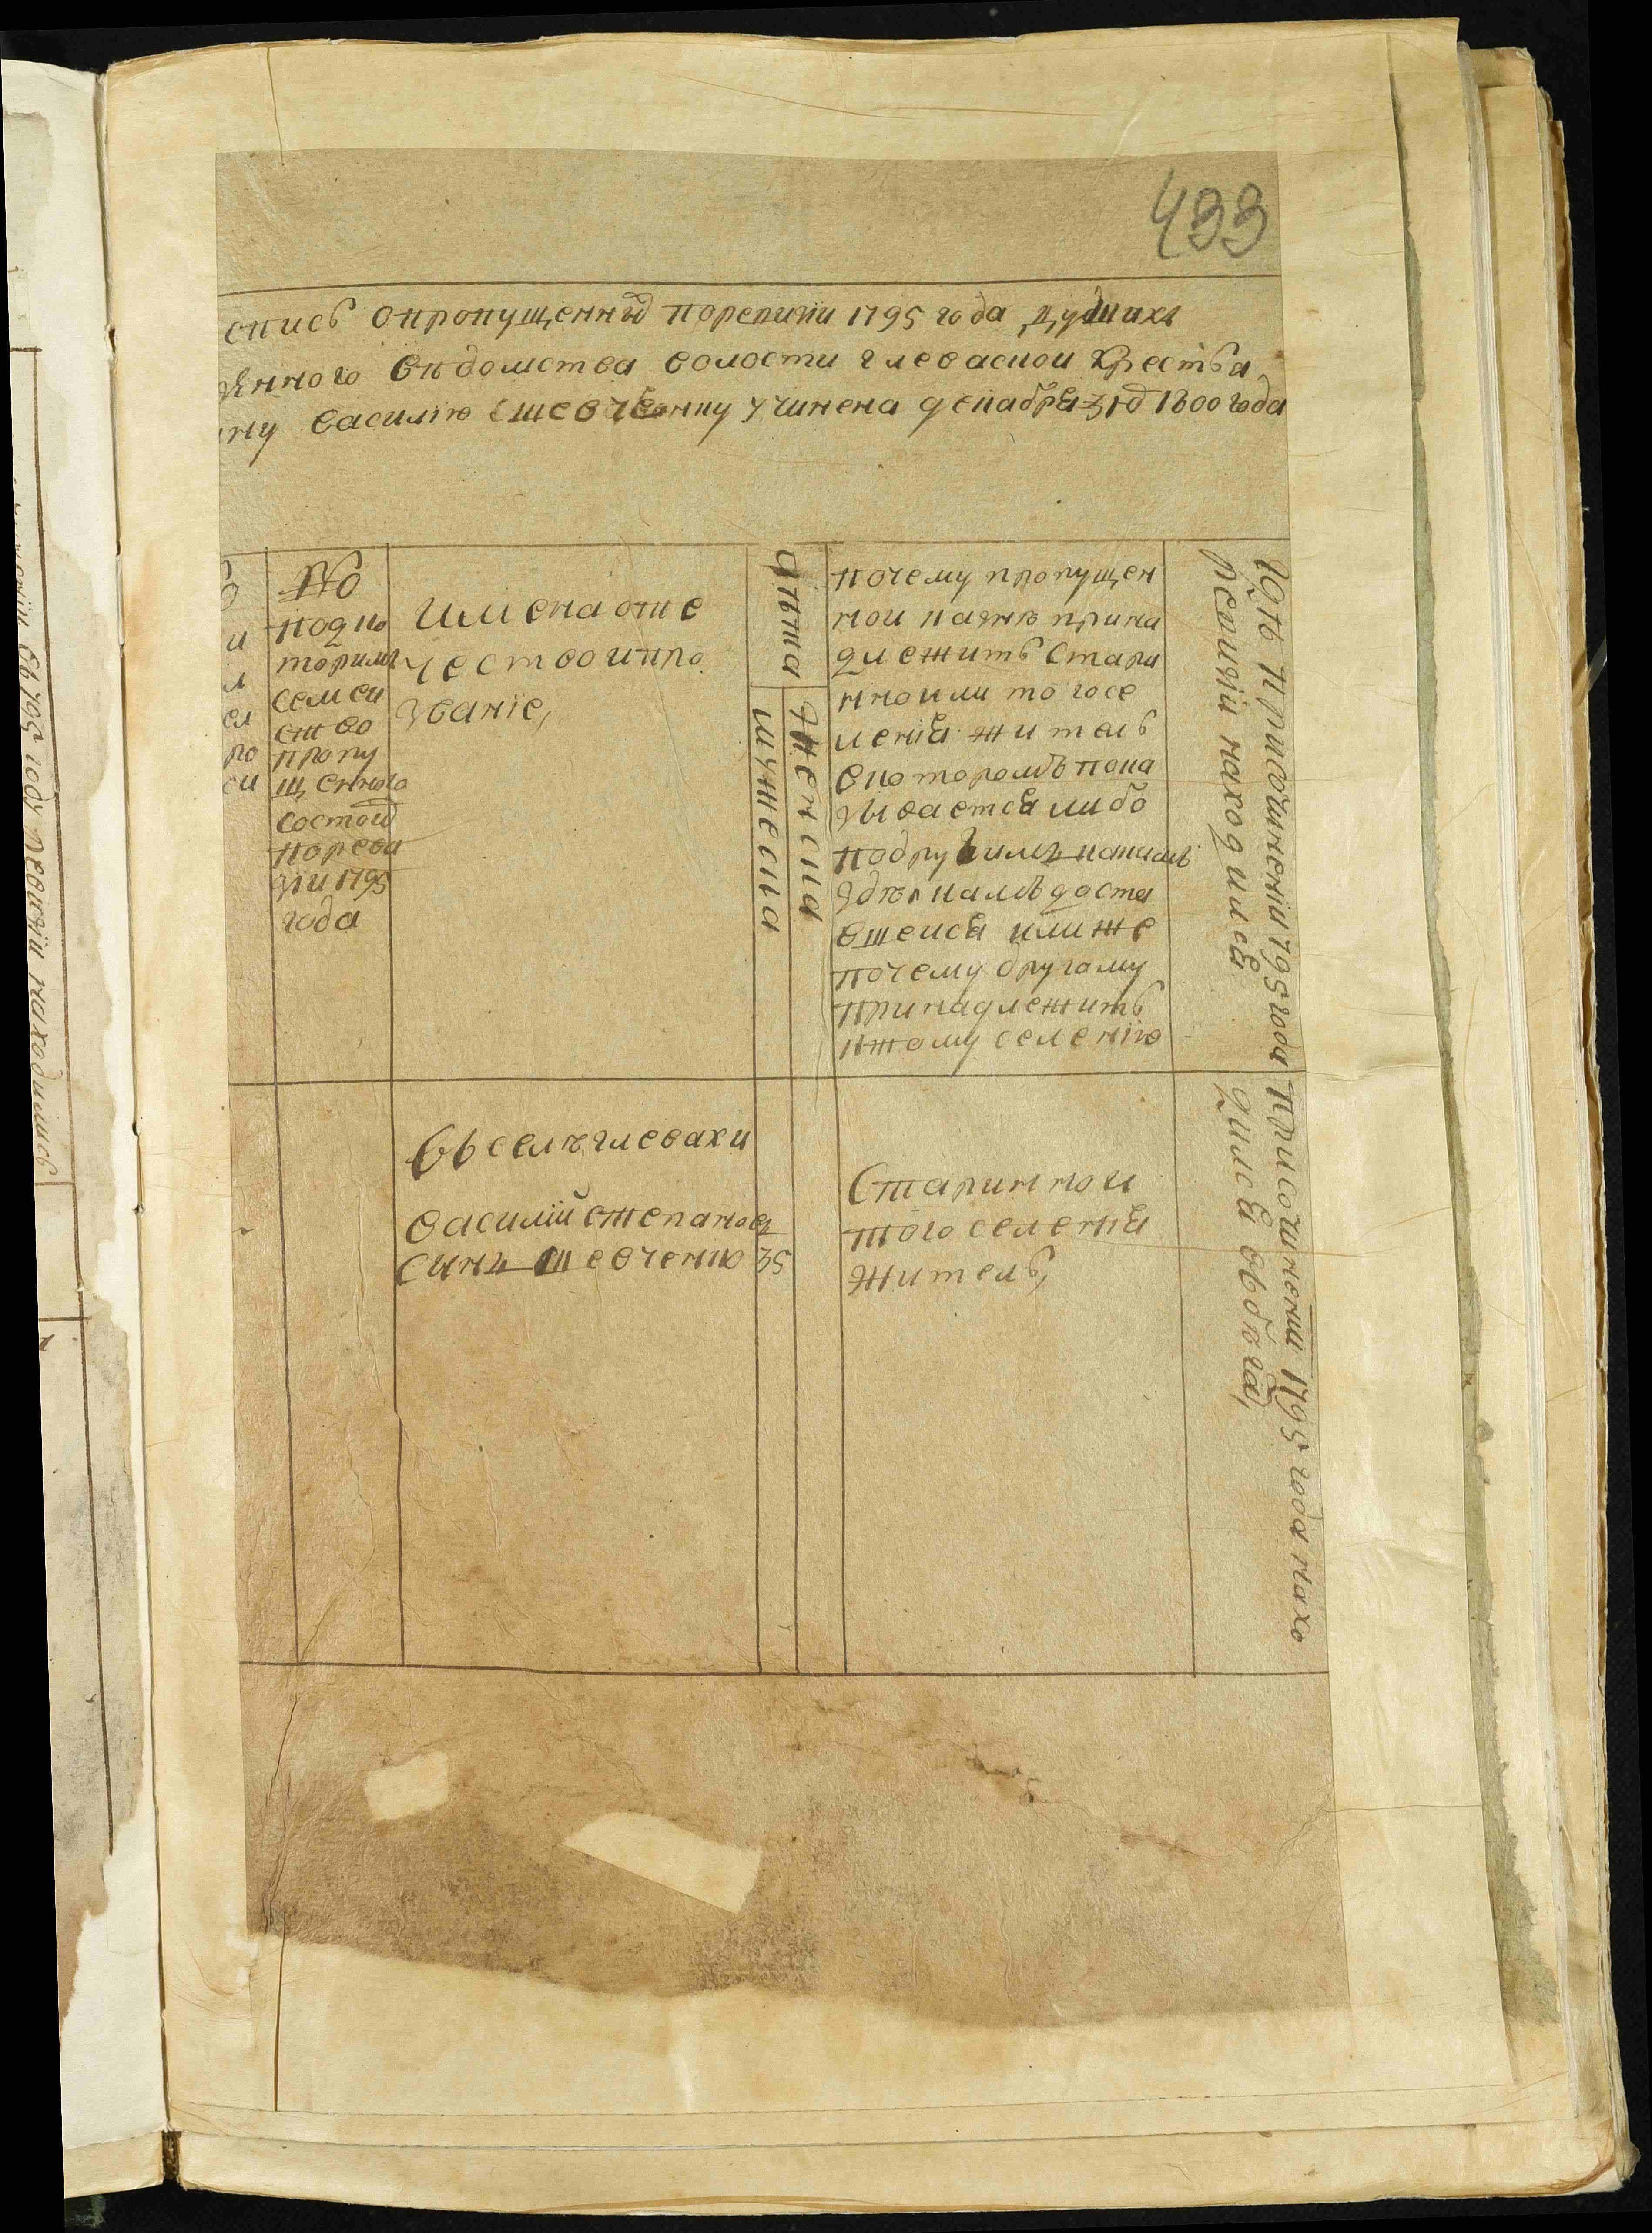 433
опись о пропущенных по ревизии 1795 года душахъ
енного ведомства волости глеваской крестья
ину василию шевченку учинена декабря 31д 1800 года
№
под ко
торимъ
семей
ство
пропу
щенного
состоит
по реви
зіи 1795
года
имена оте
чество и про
званіе,
лѣта
мужеска
женска
почему пропущен
ной казнѣ прина
длежитъ стари
нно или того се
ленія житель
в которомъ пока
зывается либо
по другимъ
почему другому
принадлежитъ
к тому селенію
Гдѣ при сочиненіи 1795 года
ревизіи находился
въ селѣ глевахи
василій степановъ
синъ шевченко
35
Старинной
того селенія
житель,
При сочинении 1795 года нахо
дился въ бѣгах,
въ 1795 году ревизіи находились